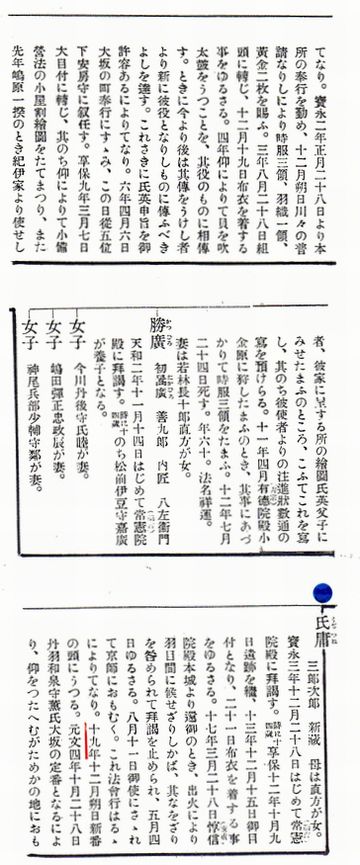 てなり。寳永二年正月二十八日より本
所の奉行を勤め、十二月朔日川々の普
請なりしにより時服三領、羽織一領、
黄金二枚を賜ふ。三年八月二十八日組
頭に轉じ、十二月十九日布衣を着する
事をゆるさる。四年仰により貝を吹
太鼓をうつことを、其役のものに相傳
す。ときに今より後は其傳をうけし者
より新に彼役となりしものに傳ふべき
よしを達す。これさきに氏英申旨を御
許容あるによりてなり。六年四月六日
大坂の町奉行にすゝみ、この日從五位
下安房守に叙任す。享保九年三月七日
大目付に轉じ、其のち仰によりて小備
營法の小屋割繪圖をたてまつり、また
先年嶋原一揆のとき紀伊家より使せし
者、彼家に呈する所の繪圖氏英父子に
みせたまふのところ、こふてこれを寫
し、其のち彼使者よりの注進狀數通の
寫を預けらる。十一年四月有德院殿小
金原に狩したまふのとき、其事にあづ
かりて時服三領をたまふ。十二年七月
二十四日死す。年六十。法名祥運。
妻は若林長十郎直方が女。
勝廣 かつひろ
初萬廣 善九郎 内匠 八左衞門
天和二年十一月十四日はじめて常憲院
殿に拜謁す。時に十四歳 のち松前伊豆守嘉廣
が養子となる。
女子
今川丹後守氏睦が妻。
女子
嶋田彈正忠政辰が妻。
女子
神尾兵部少輔守鄰が妻。
氏庸
三郎次郎 新藏 母は直方が女。
寳永三年十二月二十八日はじめて常憲
院殿に拜謁す。時に十四歳 享保十二年十月九
日遺跡を繼、十三年十二月十五日御目
付となり、二十一日布衣を着する事
をゆるさる。十七年三月二十八日惇信
院殿本城より還御のとき、出火により
羽目間に候せざりしかば、其なをざり
を咎められて拜謁を止められ、五月四
日ゆるさる。八月十一日御使にさゝれ
て京師におもむく。これ法會行はるゝ
によりてなり。十九年十二月朔日新番
の頭にうつる。元文四年十月二十八日
丹羽和泉守薫氏大坂の定番となるによ
り、仰をつたへむがためかの地におも